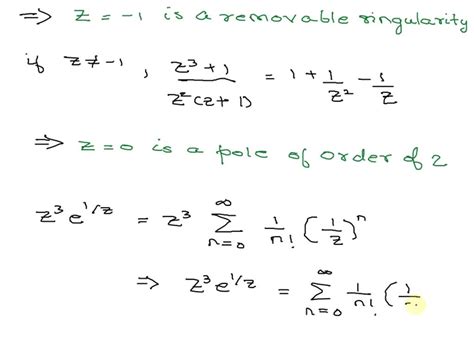 ⇒ z = -1 is a removable singularity
if z ≠ -1 , (z³ + 1)/(z²(z + 1)) = 1 + 1/z² - 1/z
⇒ z = 0 is a pole of order of 2
z³ e^{1/z} = z³ ∑_{n=0}^{∞} 1/n! (1/z)^n
⇒ z³ e^{1/z} = ∑_{n=0}^{∞} 1/n! (1/